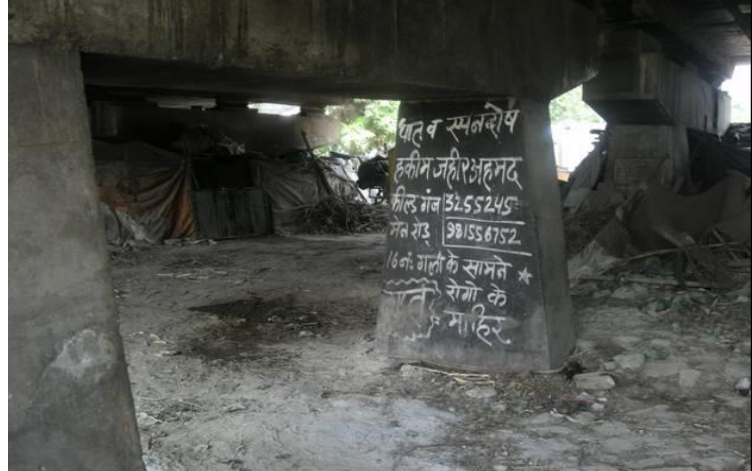 धात व स्पनदोष
हकीम जहीर अहमद
फील्ड गंज 3255245
मेन रोड़ 981556752
16 नं. गली के सामने
रोगो के
माहिर